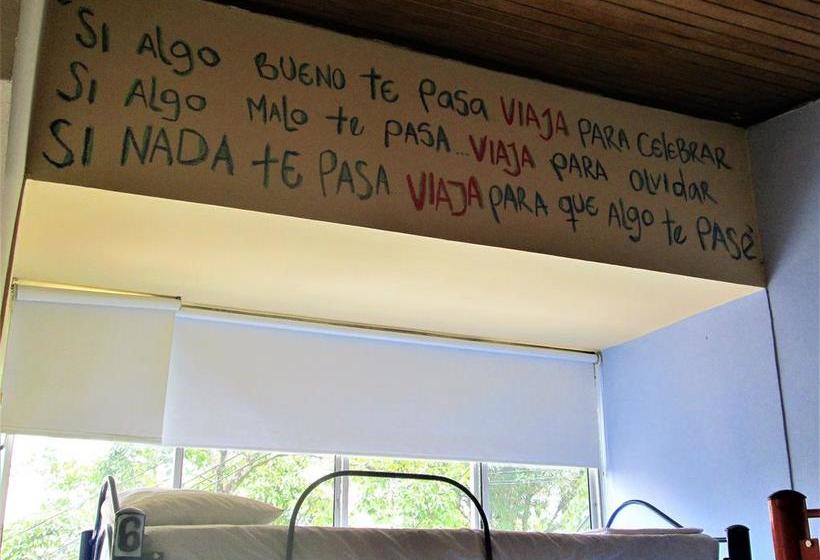 "SI Algo BUENO te Pasa VIAJA PARA CELEBRAR
SI Algo MALO te PASA... VIAJA PARA OlViDAR
SI NADA tE PASA VIAJA PARA QUE Algo te PASE"
6